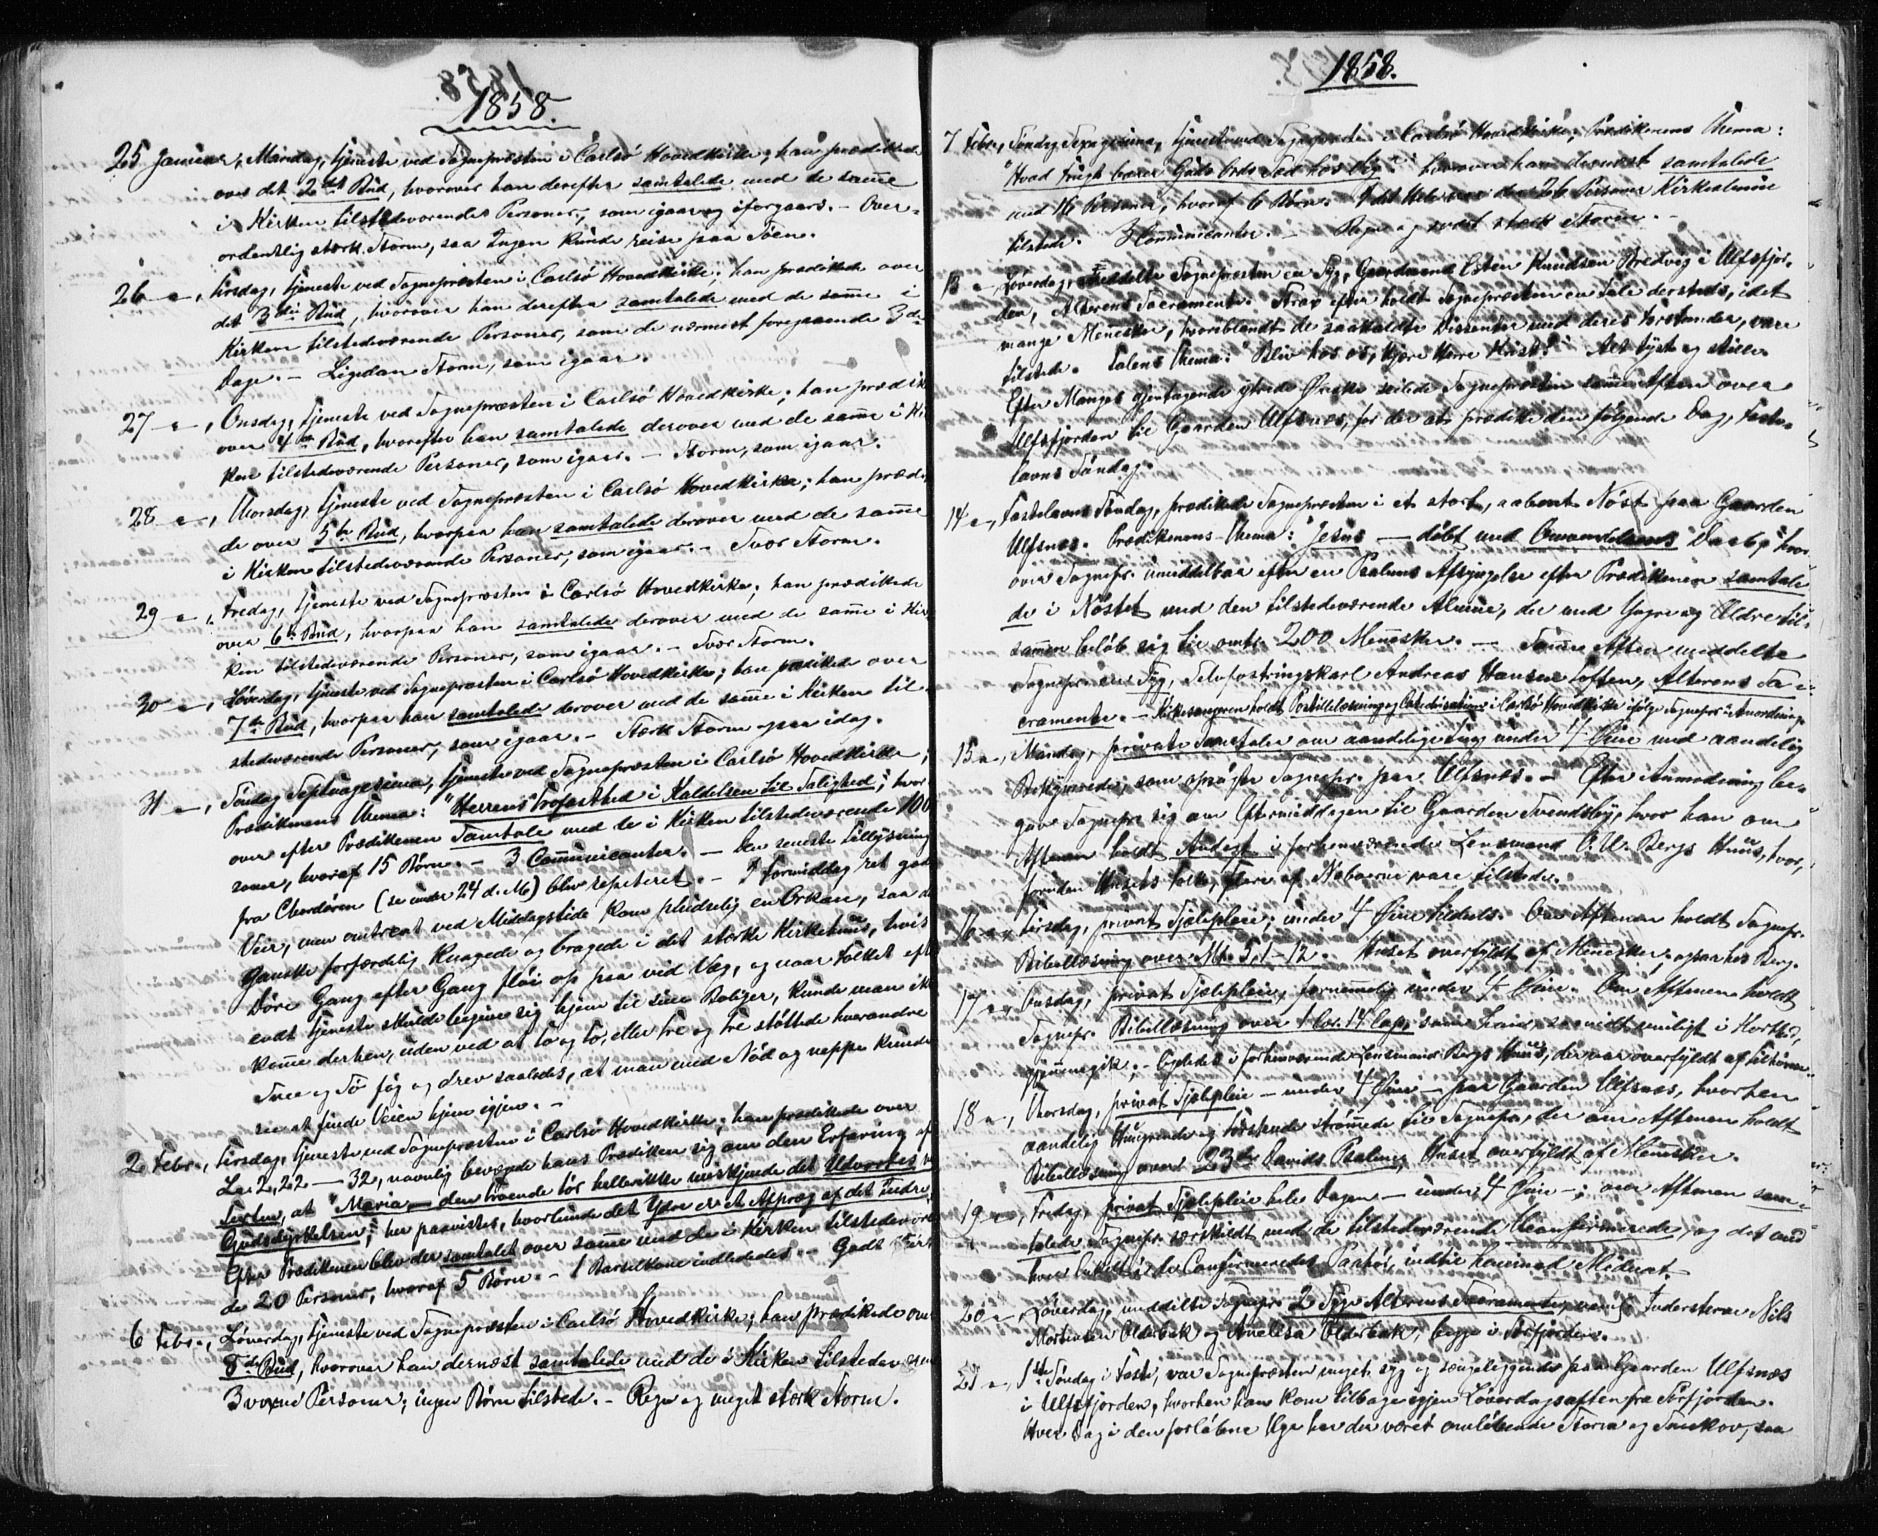 1858.
25 Januar, Mandag, tjeneste ved Sognepræsten i Carlsö Hovedkirke; han prædikede
over det 2det Bud, hvorover han derefter samtalede med de samme
i Kirken tilstedeværende Personer, som igaar og iforgaars. - Over-
ordentlig stærk Storm, saa Ingen kunde reise paa Söen.
26 - , Tirsdag, tjeneste ved Sognepræsten i Carlsö Hovedkirke; han prædikede over
det 3die Bud, hvorover han derefter samtalede med de samme i
Kirken tilstedeværende Personer, som de nærmest foregaaende 3de
Dage. - Ligedan Storm, som igaar.
27 - , Onsdag, tjeneste ved Sognepræsten i Carlsö Hovedkirke; han prædik
over 4de Bud, hvorefter han samtalede derover med de samme i Kir
ken tilstedeværende Personer, som igaar. - Storm, som igaar.
28 - , Thorsdag, tjeneste ved Sognepræsten i Carlsö Hovedkirke; han prædi
de over 5te Bud, hvorpaa han samtalede derover med de samme
i Kirken tilstedeværende Personer, som igaar. - Svær Storm.
29 - , Fredag, tjeneste ved Sognepræsten i Carlsö Hovedkirke; han prædikede
over 6te Bud, hvorpaa han samtalede derover med de samme i Kir
ken tilstedeværende Personer, som igaar. - Svær Storm.
30 - , Löverdag, tjeneste ved Sognepræsten i Carlsö Hovedkirke; han prædikede over
7de Bud, hvorpaa han samtalede derover med de samme i Kirken til
stedeværende Personer, som igaar. - Stærk Storm ogsaa idag.
31 - , Söndag Septuagesima, tjeneste ved Sognepræsten i Carlsö Hovedkirke;
Prædikenens Thema: "Herrens Trofasthed i Kaldelsen til Salighed"; hvor
over efter Prædikenen Samtale med de i Kirken tilstedeværende 100
soner, hvoraf 15 Börn. - 3 Communicanter. - Den seneste Tillysning
fra Chordören (se under 24 d. M.) blev repeteret. - I Formiddag ret godt
Veir, men omtrent ved Middagstide kom pludselig en Orkan, saa d
ganske forfærdelig knagede og bragede i det stærke Kirkehuus, hvis
Döre Gang efter Gang flöi op paa vid Væg, og naar Folket eft
endt tjeneste skulde begive sig hjem til sine Boliger, kunde man ik
komme derhen, uden ved at to og to, eller tre og tre stöttede hverandre
Snee og Sö fög og drev saaledes, at man med Nöd og neppe kunde
see at finde Veien hjem igjen. -
2 Febr., Tirsdag, tjeneste ved Sognepræsten i Carlsö Hovedkirke; han prædikede over
Luc. 2, 22 - 32, navnlig bevægede hans Prædiken sig om den Erfaring af
Texten, at "Maria - den troende tör hellerikke miskjende det Udvortes v
Gudsdyrkelsen"; her paavistes, hvorlunde det Ydre er et Afpræg af det Indre.
Efter Prædikenen blev der samtalet over samme med de i Kirken tilstedevære
de 20 Personer, hvoraf 5 Börn. - 1 Barselkone indlededes. - Godt
6 Febr., Löverdag, tjeneste ved Sognepræsten i Carlsö Hovedkirke; han prædikede over
8de Bud, hvorover han dernæst samtalede med de i Kirken tilstedeværen
3 voxne Personer; ingen Börn tilstede. - Regn og meget stærk Storm.
1858.
7 Febr., Söndag Sexagesima, tjeneste ved Sognepr. i Carlsö Hovedkirke; Prædikenens Thema:
"Hvad Frugt bærer Guds Ords Sæd hos Dig?" hvorover han dernæst samtalede
med 16 Personer, hvoraf 6 Börn. I det Hele var der 26 Personer Kirkealmue
tilstede. 3 Communicanter. - Regn og svært stærk Storm. -
13 - , Löverdag, meddelte Sognepræsten en Syg, Gaardmand Esten Knudsen Bredvig i Ulfsfjor-
den, Alterens Sacramente. Strax efter holdt Sognepræsten en Tale dersteds, idet
mange Mennesker, hvoriblandt de saakaldte Dissenter med deres Forstander, vare
tilstede. Talens Thema: "Bliv hos os, kjære Herre Krist!" Alt tyst og stille.
Efter Manges gjentagende ytrede Ønske seilede Sognepræsten samme Aften over
Ulfsfjorden til Gaarden Ulfsnæs, for der at prædike den fölgende Dag, Faste-
lavns Söndag.
14 - , Fastelavns Söndag, prædikede Sognepræsten i et stort, aabent Nöst paa Gaarden
Ulfsnæs. Prædikenens Thema: "Jesus - döbt med Omvendelsens Daab;" hvor-
over Sognepr. umiddelbar efter en Psalmes Afsyngelse efter Prædikenen samtale-
de i Nöstet med den tilstedeværende Almue, der med Yngre og Ældre til-
sammen belöb sig til omtr. 200 Mennesker. - Samme Aften meddelte
Sognepr. en Syg, Selvfostringskarl Andreas Hansen Toften, Alterens Sa-
cramente. - Kirkesangeren holdt Postillelæsning og Catechisation i Carlsö Hovedkirke ifölge Sognepr. Anordning.
15 - , Mandag, private Samtaler om aandelige ting under 4 Øine med aandelig
Bekymrede, som opsögte Sognepr. paa Ulfsnæs. - Efter Anmodning be-
gav Sognepr. sig om Eftermiddagen til Gaarden Svendsby, hvor han om
Aftenen holdt Andagt i forhenværende Lensmand O. W. Bergs Huus, hvor,
foruden Husets Folk, flere af Naboerne vare tilstede.
16 - , Tirsdag, privat Sjælepleie; under 4 Øine tildeels. Om Aftenen holdt Sognepr.
Bibellæsning over Mt. 5, 1-12. Huset overfyldt af Mennesker, ogsaa hos Berg.
17 - , Onsdag, privat Sjælepleie, fornemelig under 4 Øine. Om Aftenen holdt
Sognepr. Bibellæsning over 1 Cor. 14 Cap., som Ferie, saavidt muligt i Korthed,
gjennemgik; - ligeledes i forhenværende Lensmand Bergs Huus, der var overfyldt af Tilhörere.
18 - , Thorsdag, privat Sjælepleie - under 4 Øine - paa Gaarden Ulfsnæs, hvorhen
aandelig Hungrende og Törstende strömmede til Sognepr., der om Aftenen holdt
Bibellæsning over 23de Davids Psalme. Huset overfyldt af Mennesker.
19 - , Fredag, privat Sjælepleie hele Dagen - under 4 Øine -; om Aftenen sam-
talede Sognepr. særskildt med de tilstedeværende Confirmerede, og det med
hver enkelt de Confirmeredes Paahör, indtil henimod Midnat.
20 - , Löverdag, meddelte Sognepr. 2 Syge Alterens Sacramente, nemlig Inderstene Nils
Mortensen Olderbæk og Anelisa Olderbæk, begge i Sörfjorden.
21 - , 1ste Söndag i Faste, var Sognepræsten meget syg og sengeliggende paa Gaarden Ulfsnæs
i Ulfsfjorden, hvorhen han kom tilbage igjen Löverdagsaften fra Sörfjorden.
Hver Dag i den forlöbne Uge har der været omlöbende Storm og Sneekov, saa